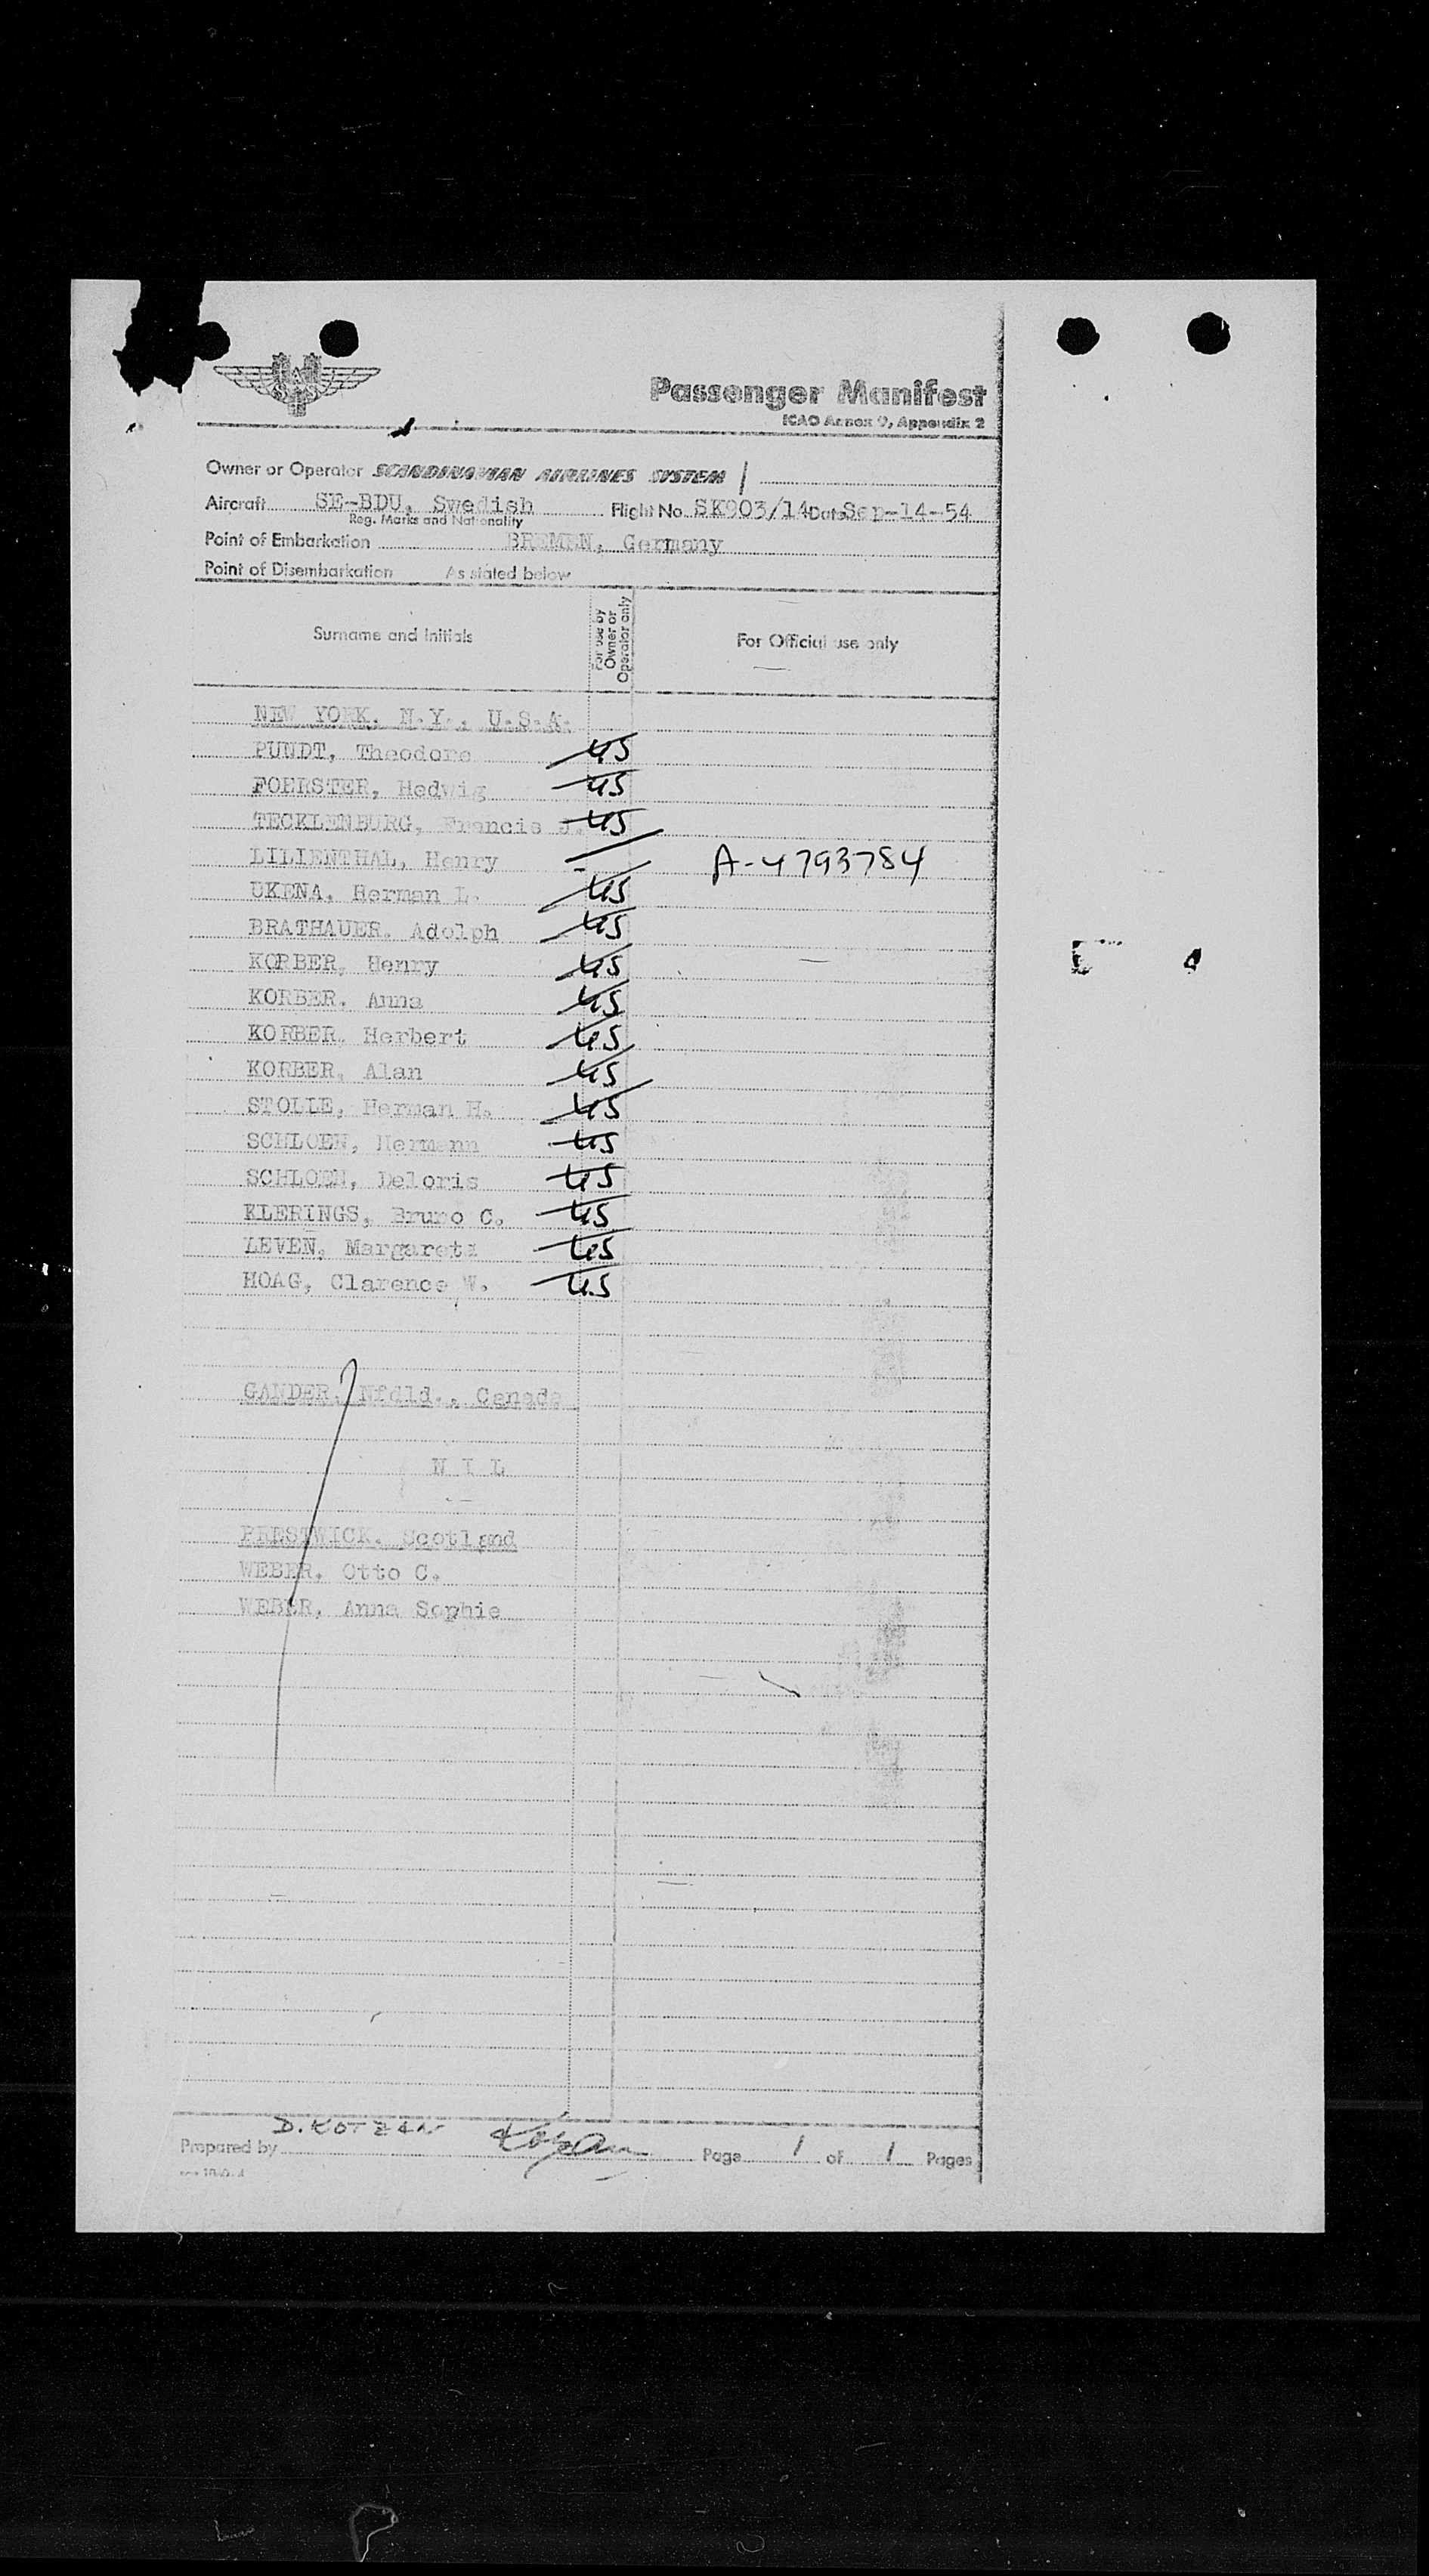 SAS
Passenger Manifest
ICAO Annex 9, Appendix 2
Owner or Operator SCANDINAVIAN AIRLINES SYSTEM
Aircraft SE-BDU, Swedish Flight No. SK903/14 Date Sep-14-54
Reg. Marks and Nationality
Point of Embarkation BREMEN, Germany
Point of Disembarkation As stated below
Surname and initials For use by Owner or Operator only For Official use only
NEW YORK, N.Y., U.S.A.
PUNDT, Theodore US
FOERSTER, Hedwig US
TECKLENBURG, Francis J. US
LILIENTHAL, Henry - A-4793784
UKENA, Herman L. US
BRATHAUER, Adolph US
KORBER, Henry US
KORBER, Anna US
KORBER, Herbert US
KORBER, Alan US
STOLLE, Herman H. US
SCHLOEN, Hermann US
SCHLOEN, Deloris US
KLERINGS, Bruno C. US
LEVEN, Margareta US
HOAG, Clarence W. US
GANDER, Nfdld., Canada
N I L
PRESTWICK, Scotland
WEBER, Otto C.
WEBER, Anna Sophie
Prepared by D. KOTZAN Kotzan Page 1 of 1 Pages